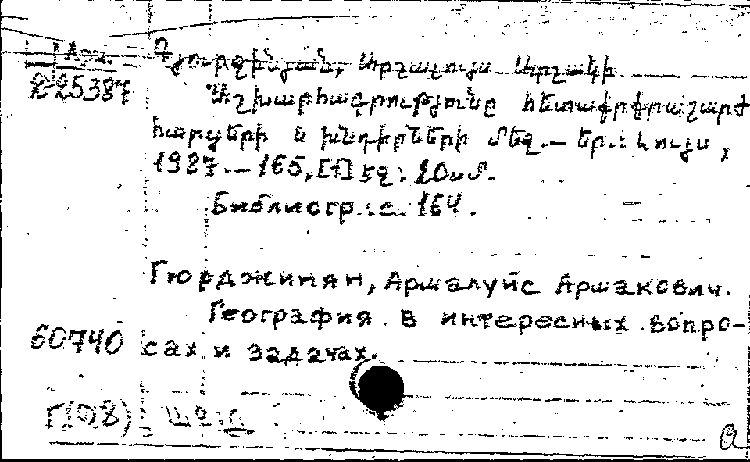 Арм.
2-25387
Գյուրջինյան, Արշալույս Արշակի
Աշխարհագրությունը հետաքրքրաշարժ
հարցերի և խնդիրների մեջ.— Եր.: Լույս,
1987.— 165, [1] էջ: 20սմ.
Библиогр.: с. 164.
Гюрджинян, Аршалуйс Аршакович.
География в интересных вопро-
60740 сах и задачах.
Г(08)
a